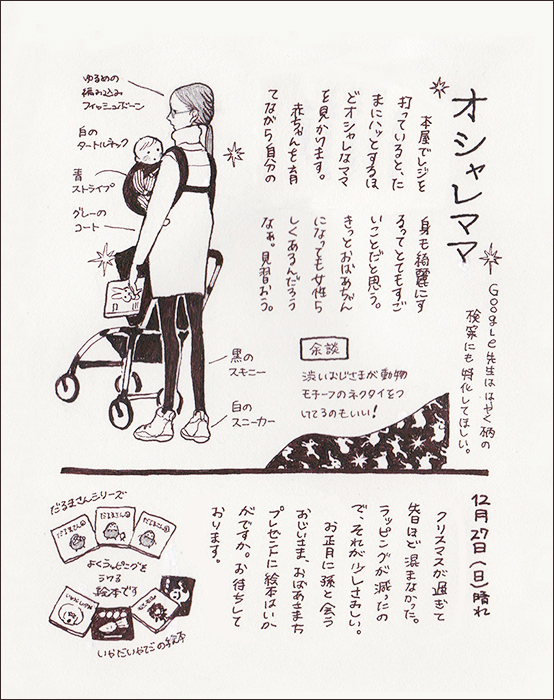 オシャレママ
本屋でレジを
打っていると、た
まにハッとするほ
どオシャレなママ
を見かけます。
赤ちゃんを育
てながら自分の
身も綺麗にす
るってとてもすご
いことだと思う。
きっとおばあちゃん
になっても女性ら
しくあるんだろう
なぁ。見習おう。
Google先生ははやく柄の
検索にも特化してほしい。
ゆるめの
編み込み
フィッシュボーン
白の
タートルネック
青
ストライプ
グレーの
コート
黒の
スキニー
白の
スニーカー
余談
渋いおじさまが動物
モチーフのネクタイをつ
けてるのもいい!
12月27日(日)晴れ
クリスマスが過ぎて
先日ほど混まなかった。
ラッピングが減ったの
で、それが少しさみしい。
お正月に孫と会う
おじいさま、おばあさまたち
プレゼントに絵本はいか
がですか。お待ちして
おります。
だるまさんシリーズ
だるまさんが
だるまさんの
だるまさんと
よくラッピングを
する
絵本です
いやだいやだの絵本